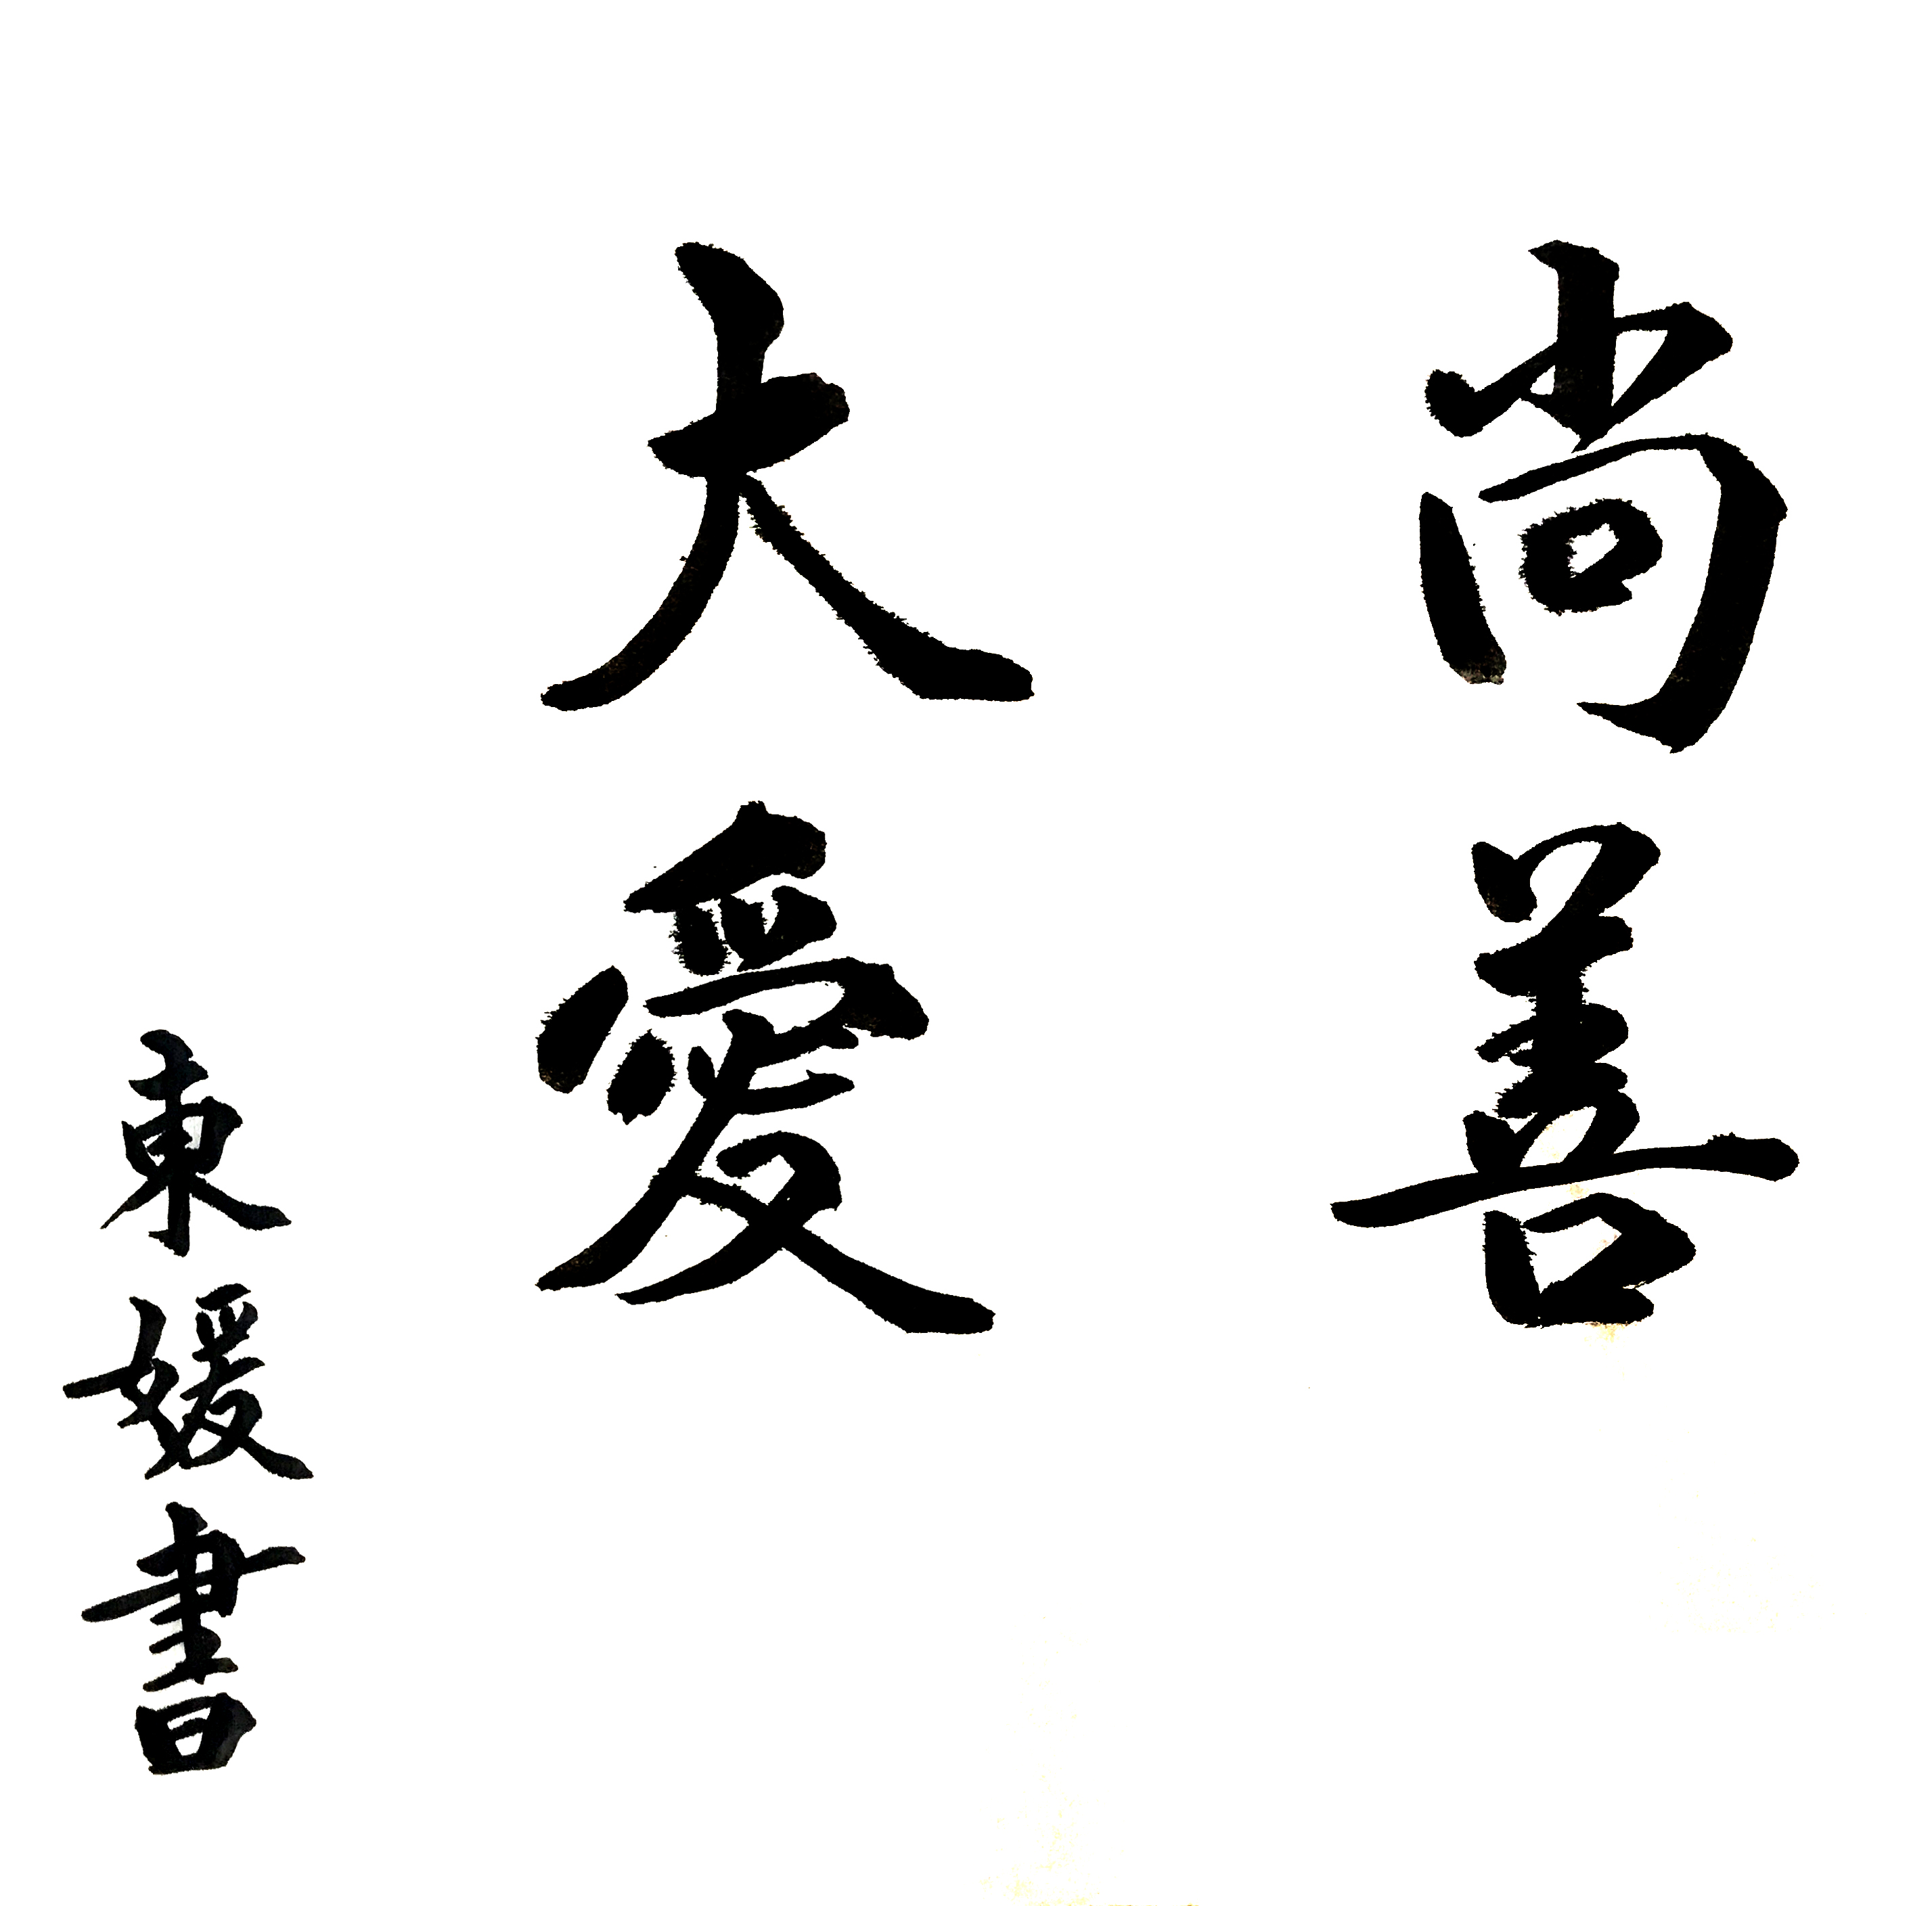 尚善
大愛
東媛書